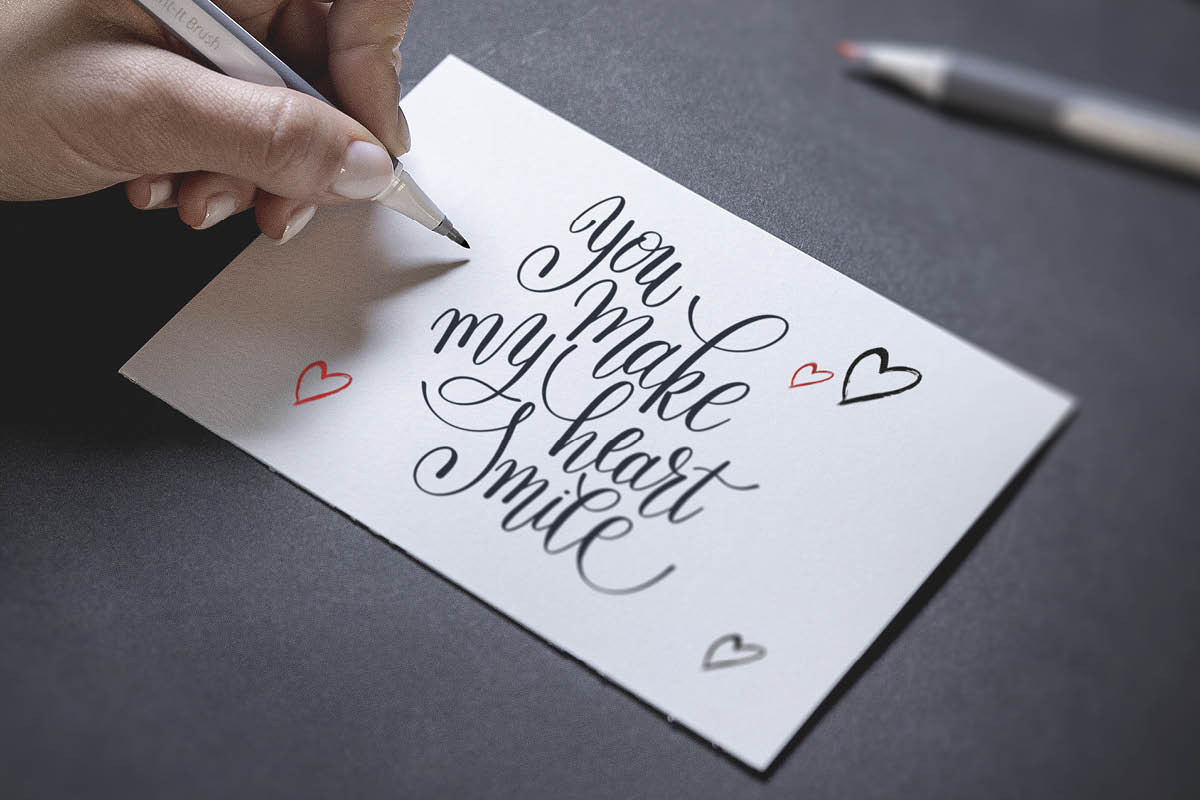 nt-It Brush
You
make
my heart
Smile